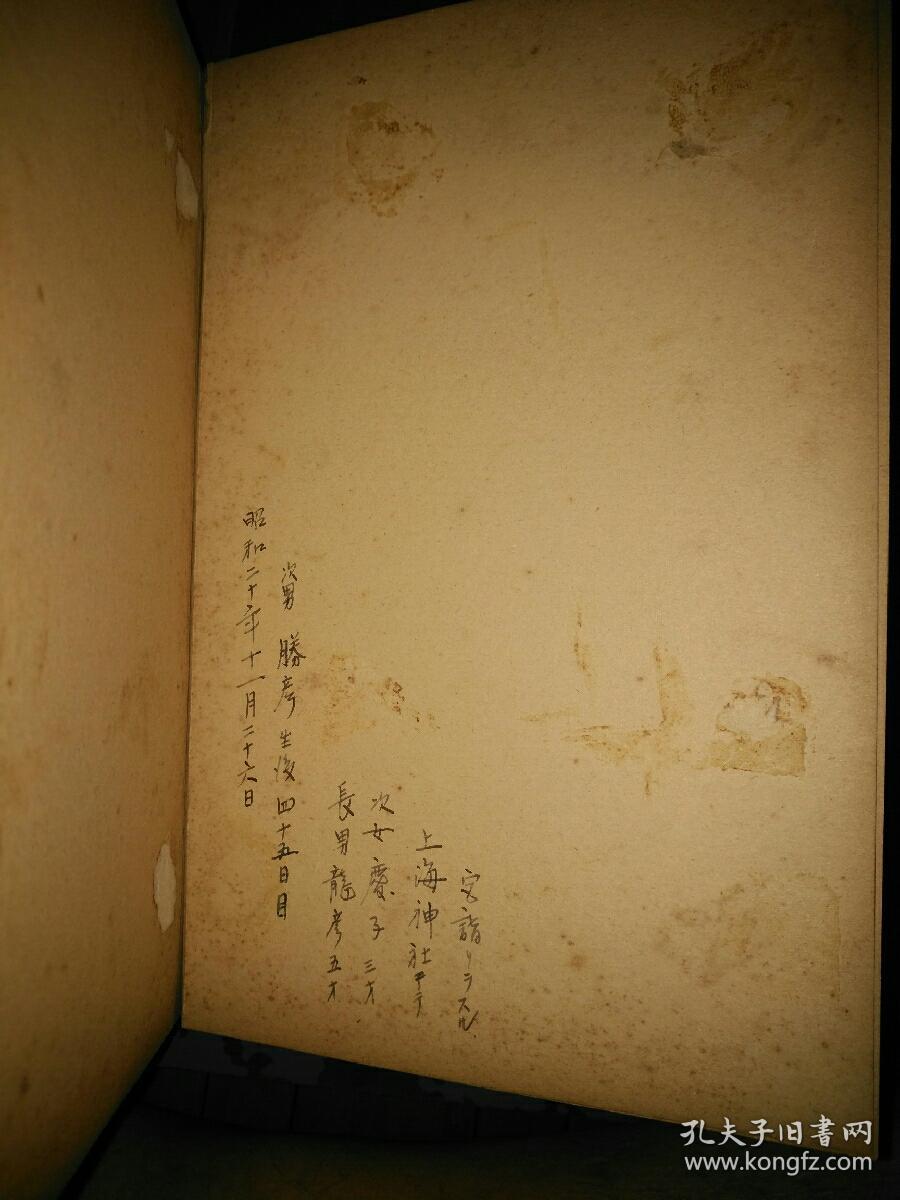 昭和二十年十一月二十六日
次男 勝彦 生後四十五日目
長男龍彦五才
次女慶子三才
上海神社ニテ
宮詣リヲスル
孔夫子旧書网
www.kongfz.com